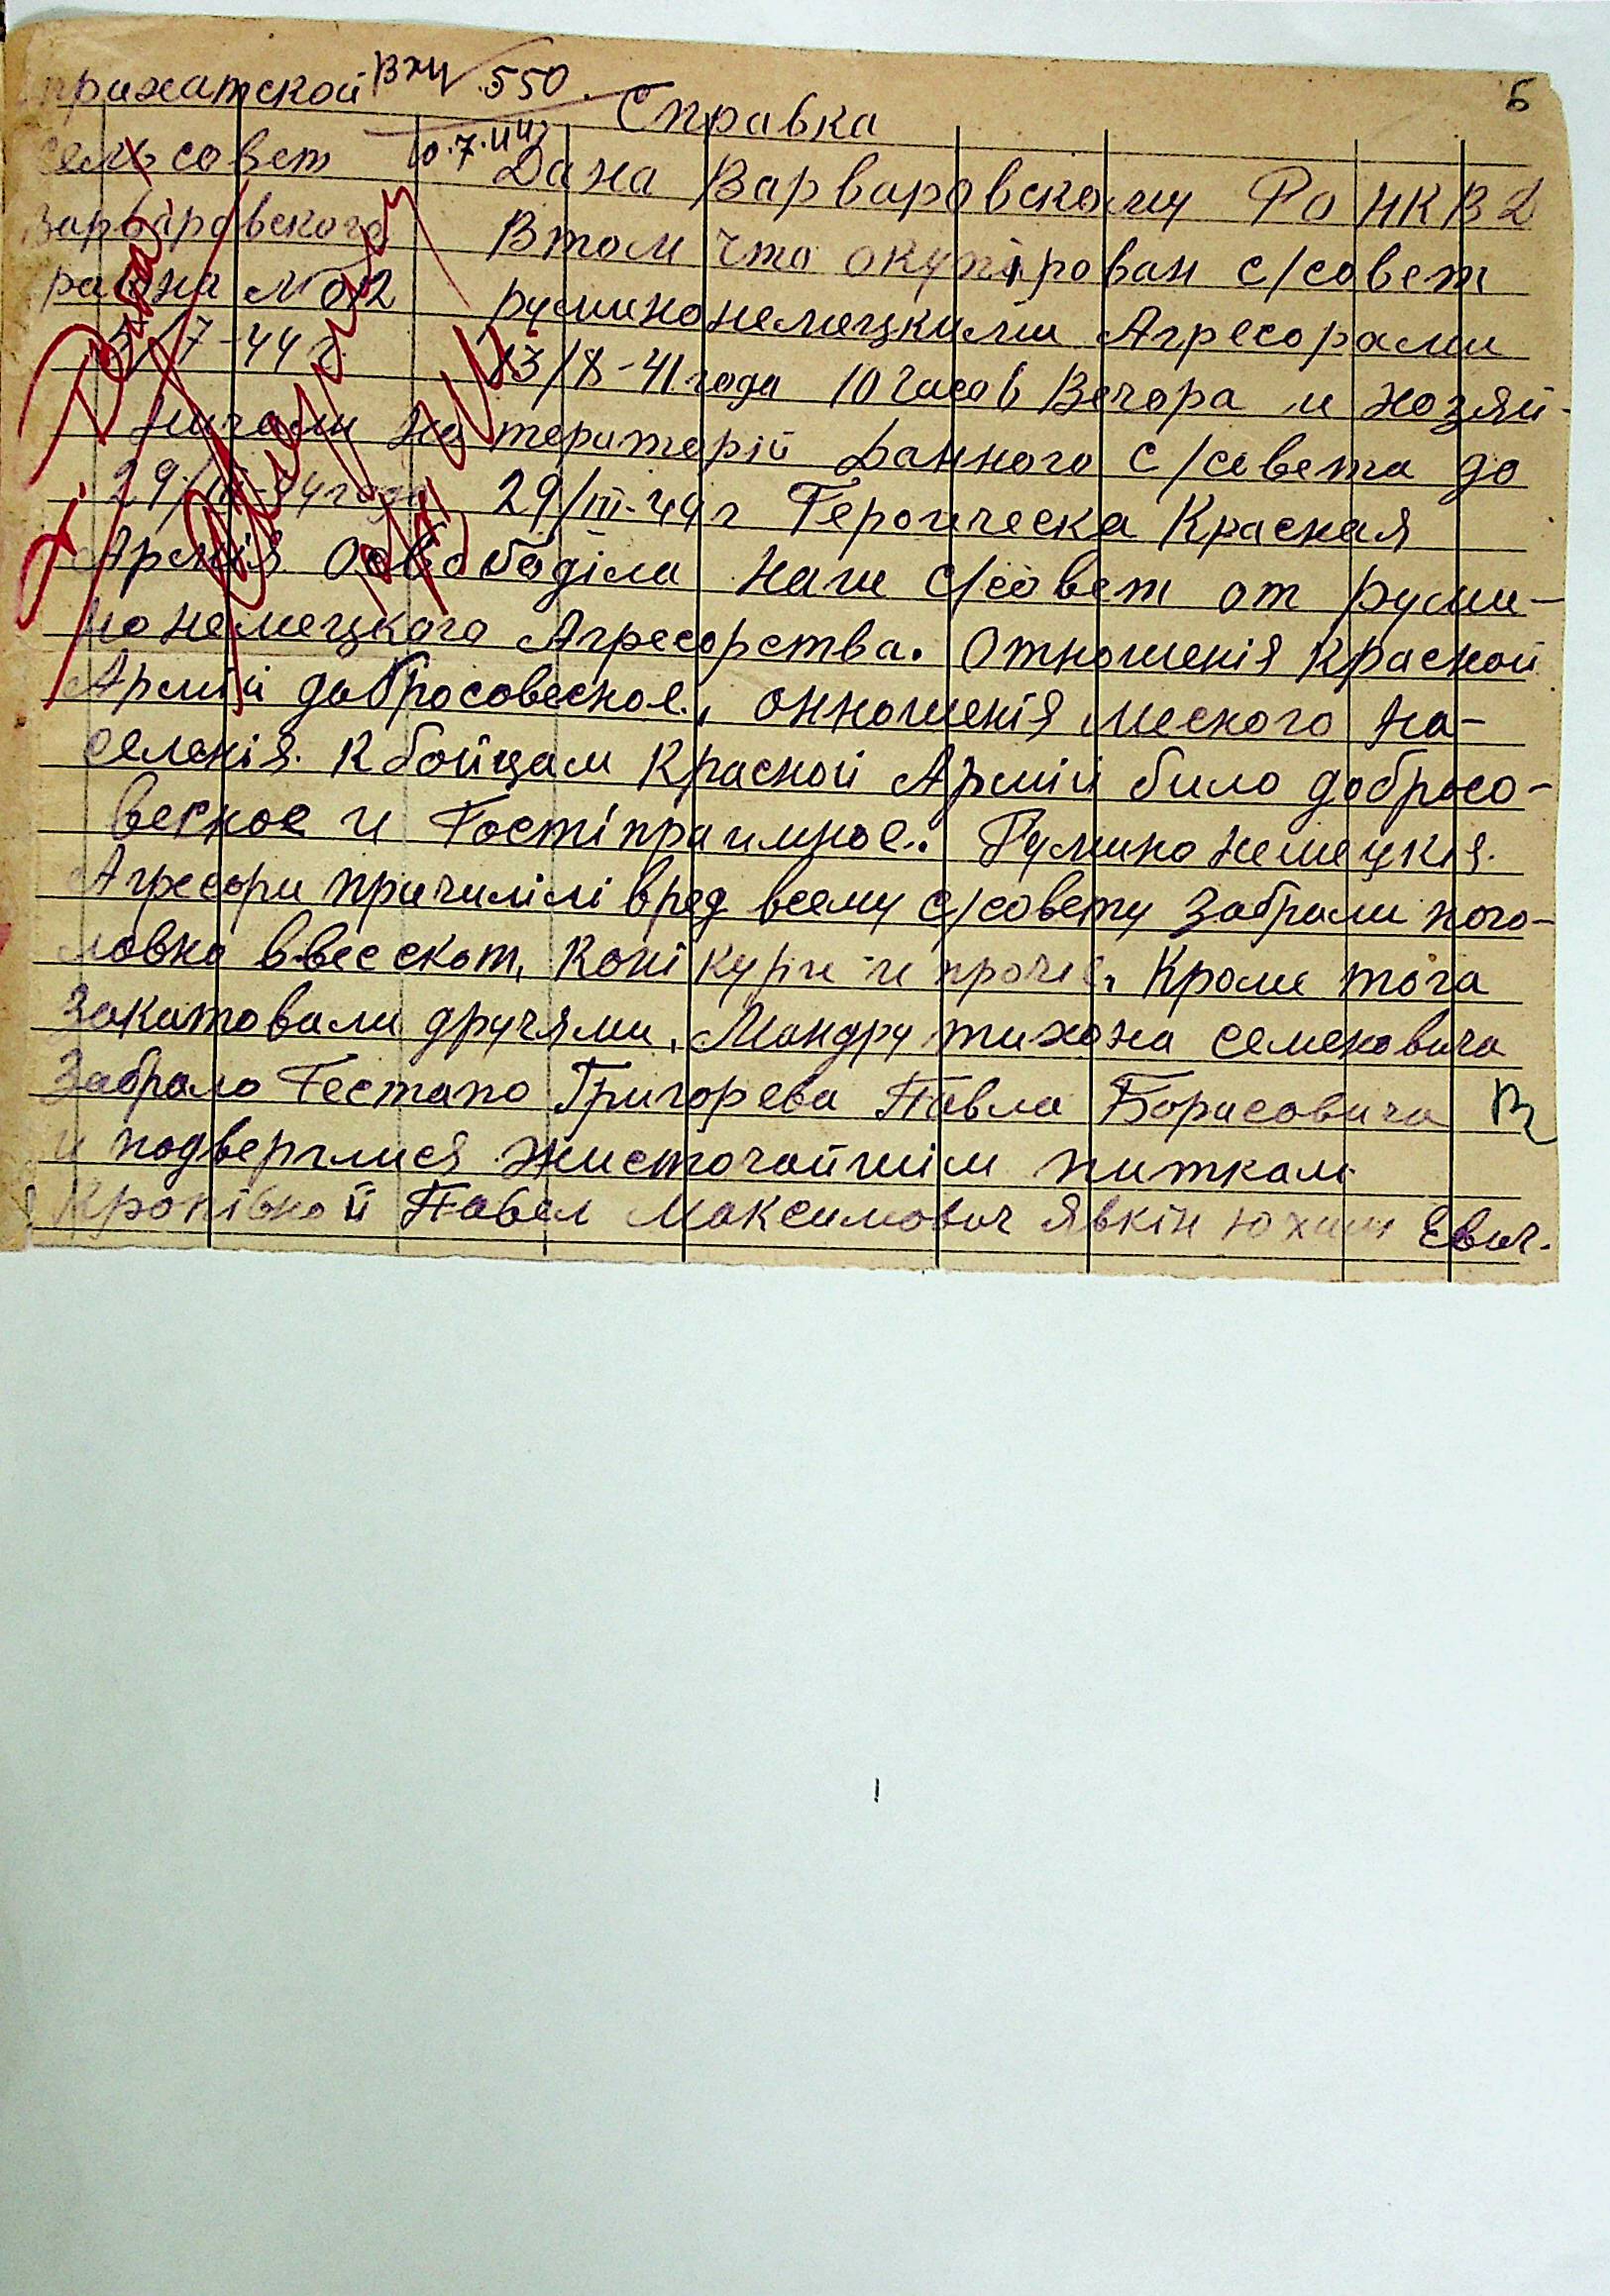 прихатской Вху 550 Справка 5
сельсовет 10.7.44 Дана Варваровскому Ро НКВД
Варваровского Втом что окупірован с/совет
района № 02 руминонемецкими Агресорами
5/7-44 г. 13/8-41 года 10 часов Вечора и хозяй-
ничали на територій данного с/совета до
29/III-44 года 29/III-44 г Героическа Красная
Армія Освободіла наш с/совет от руми-
но немецкого Агресорства. Отношенія Красной
Армій добросовесное, онношенія меского на-
селенія. К бойцам Красной Армій било добросо-
весное и Гостіпраимное. Румино немецкія
Агресори причилілі вред всему с/совету забрали пого-
ловно ввес скот, Коні куры и прочіе, Кроме того
Закатовали дручями, Мандру тихона семеновича
Забрало Гестапо Григорева Павла Борисовича
и подверглися жисточайшім питкам
Кропівной Павел Максимович Явкін Юхим Евич.